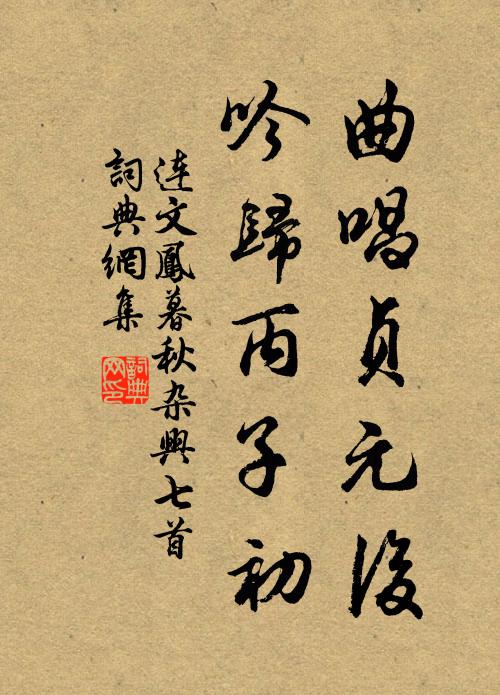 曲唱貞元後
吟歸丙子初
连文鳳暮秋杂興七首
詞典網集
詞典网印